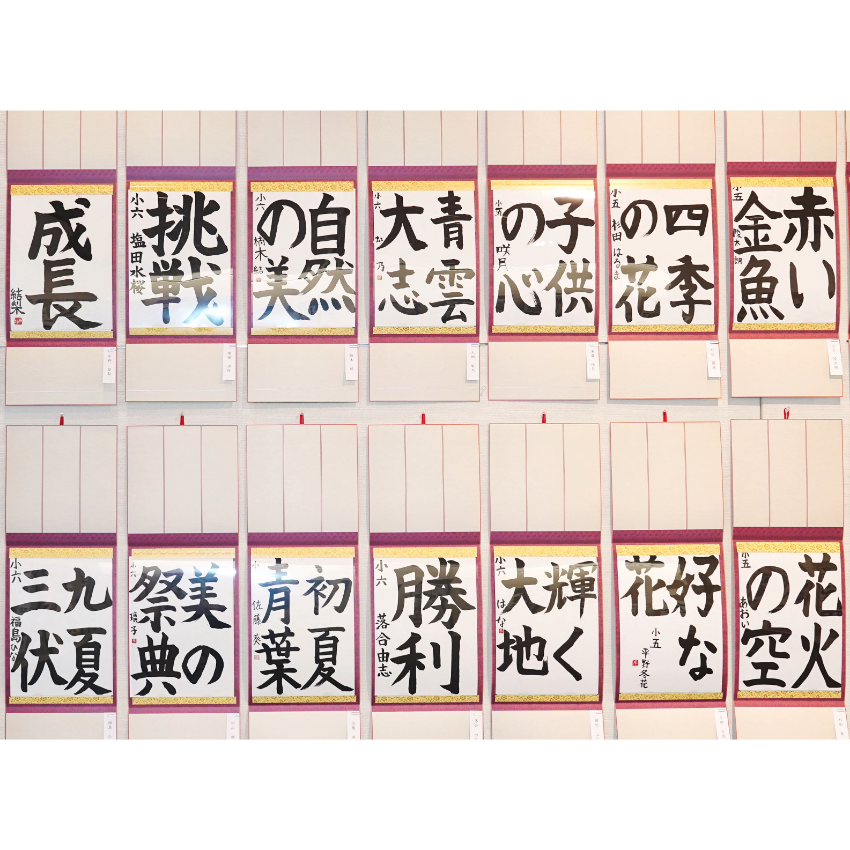 赤い
金魚
小五
四季
の花
小五 杉田 はるま
子供
の心
小五 咲月
青雲
大志
小六
自然
の美
小六 楠木 結
挑戦
小六 塩田水桜
成長
結梨
花火
の空
小五 あおい
好な
花
小五 平野冬花
輝く
大地
小六 はな
勝利
小六 落合由志
初夏
青葉
小六 佐藤 葵
美の
祭典
小六 環子
九夏
三伏
小六 福島ひな